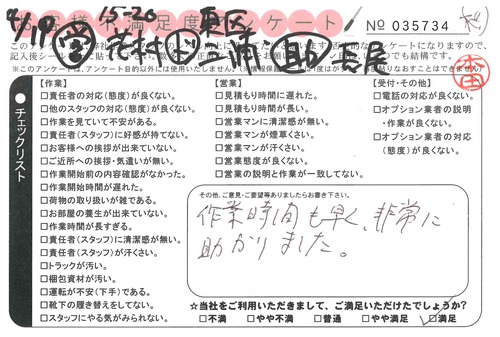 お客様不満足度アンケート！
No 035734
4/19 営 15-20 東区
このアンケートは、
記入後シー
※このアンケートは、アンケート目的以外には使用いたしません。
チェックリスト
【作業】
□責任者の対応（態度）が良くない。
□他のスタッフの対応（態度）が良くない。
□作業を見ていて不安がある。
□責任者（スタッフ）に好感が持てない。
□お客様への挨拶が出来ていない。
□ご近所への挨拶・気遣いが無い。
□作業開始前の内容確認がなかった。
□作業開始時間が遅れた。
□荷物の取り扱いが雑である。
□お部屋の養生が出来ていない。
□作業時間が長すぎる。
□責任者（スタッフ）に清潔感が無い。
□責任者（スタッフ）が汗くさい。
□トラックが汚い。
□梱包資材が汚い。
□運転が不安（下手）である。
□靴下の履き替えをしてない。
□スタッフにやる気がみられない。
【営業】
□見積もり時間に遅れた。
□見積もり時間が長い。
□営業マンに清潔感が無い。
□営業マンが煙草くさい。
□営業マンが汗くさい。
□営業態度が良くない。
□営業の説明と作業が一致してない。
【受付・その他】
□電話の対応が良くない。
□オプション業者の説明
・作業が良くない。
□オプション業者の対応
（態度）が良くない。
その他、ご意見・ご要望等ありましたらお書き下さい。
作業時間も早く、非常に
助かりました。
☆当社をご利用いただきまして、ご満足いただけたでしょうか?
□不満 □やや不満 □普通 □やや満足 □満足